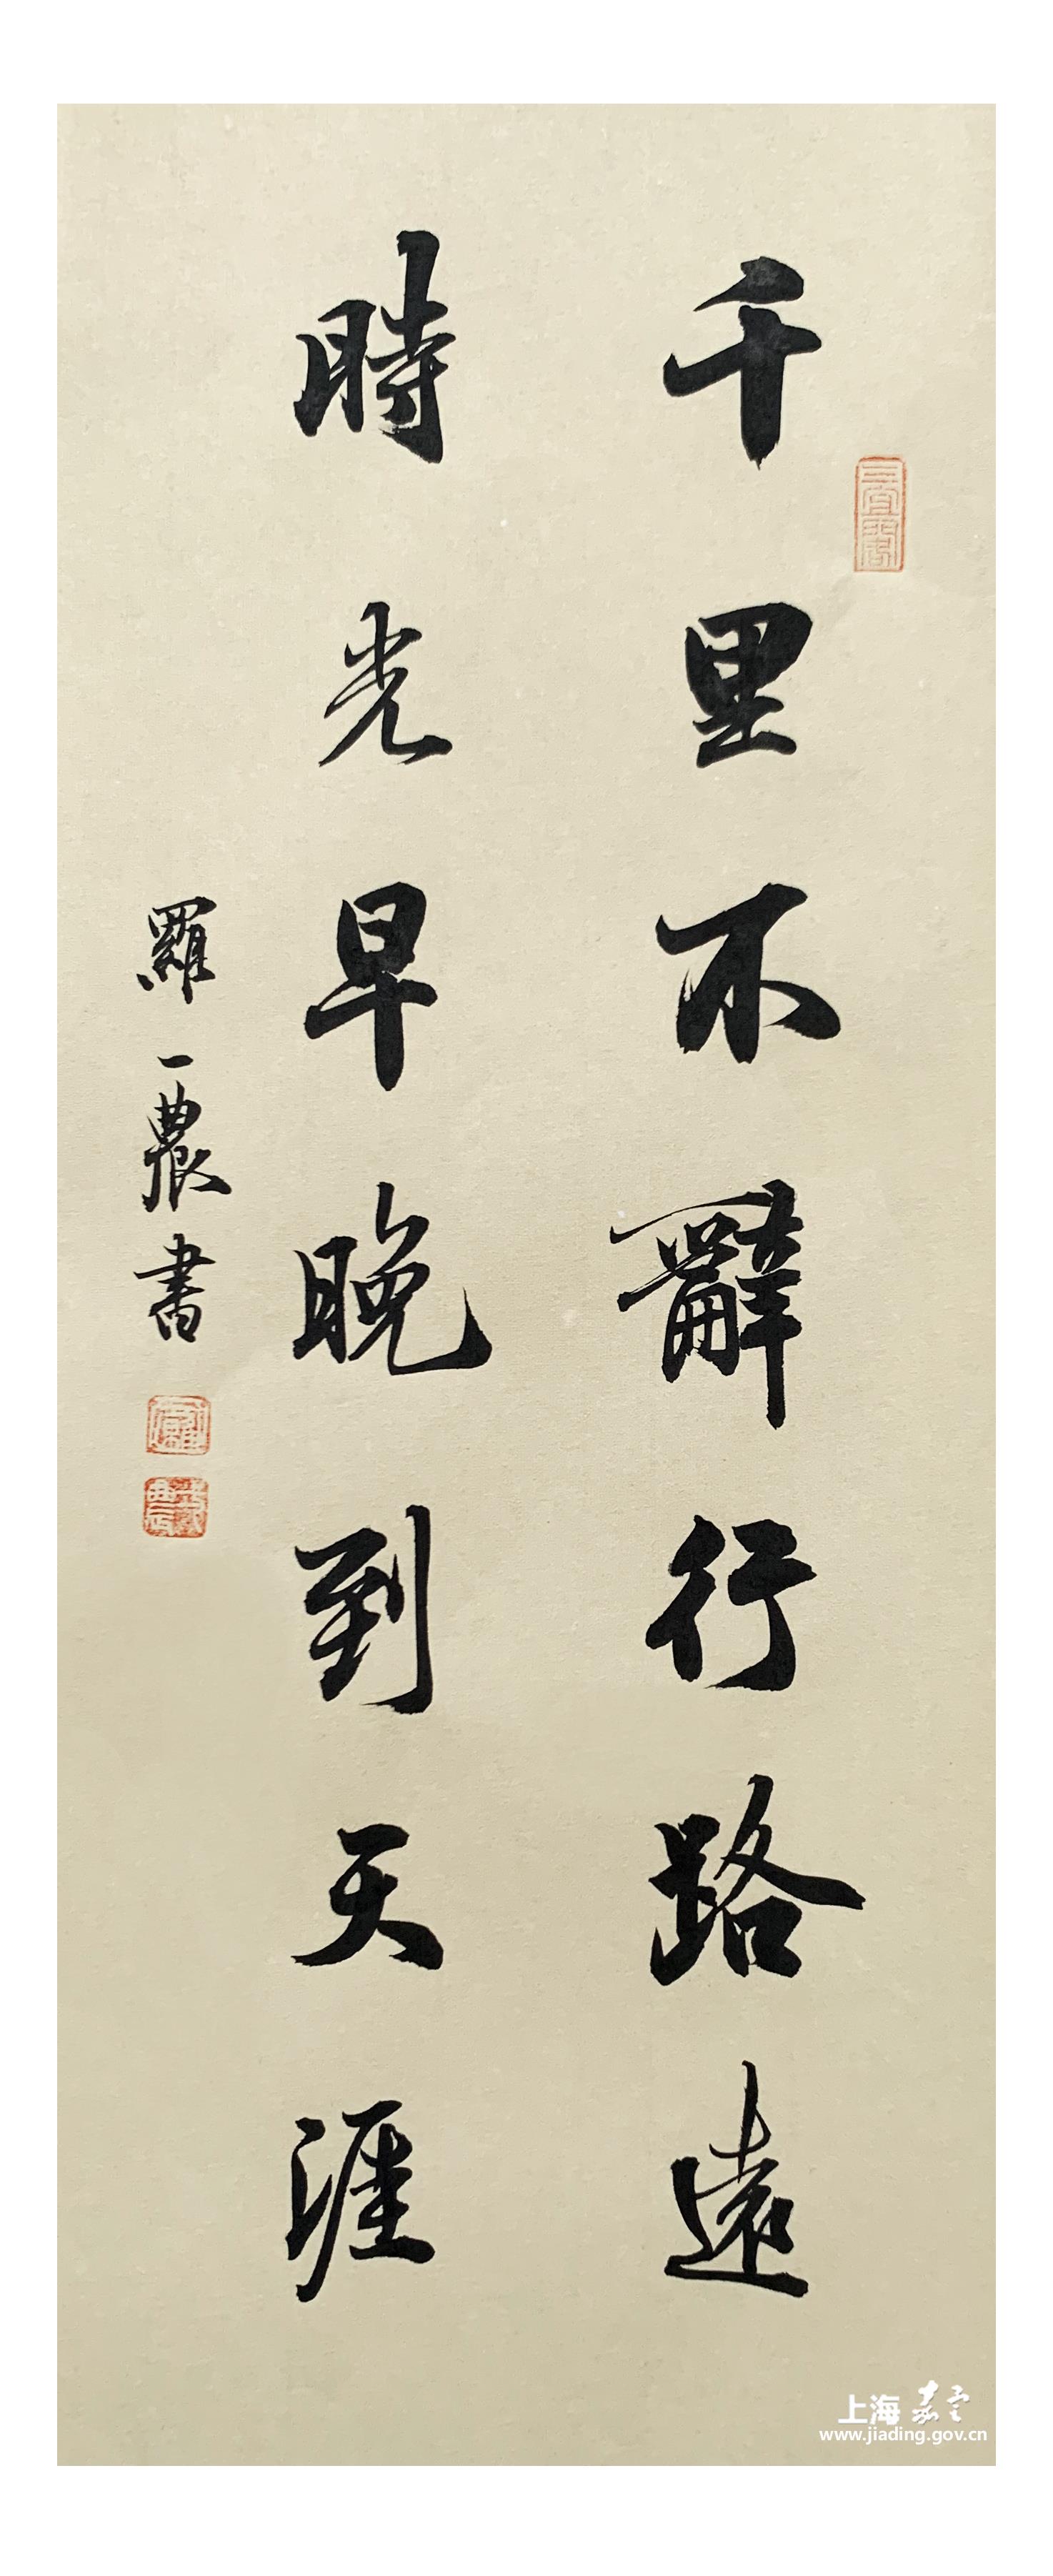 千里不辭行路遠
時光早晚到天涯
羅一農書
上海嘉定
www.jiading.gov.cn